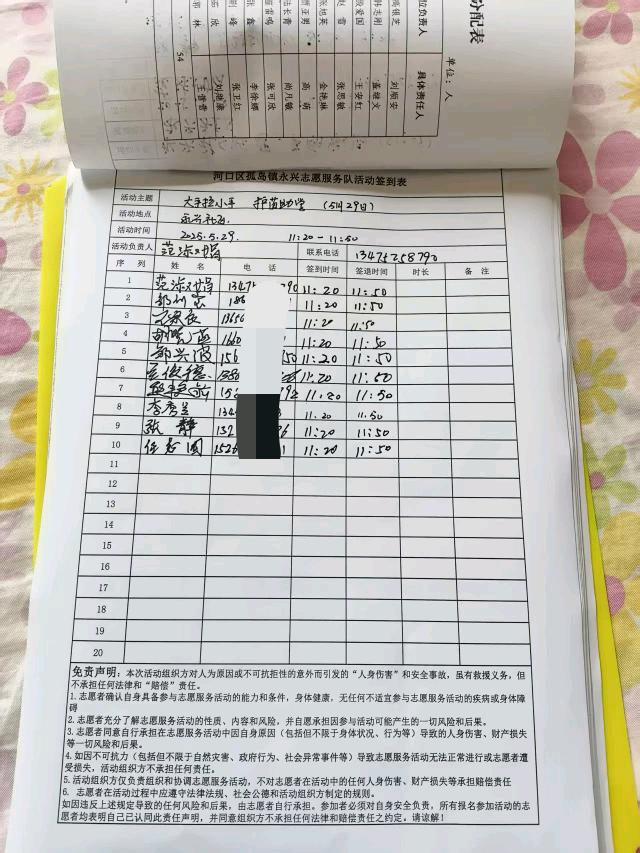 分配表
单位:人
位负责人
具体责任人
刘顺安
孟继文
王安红
张恩敏
金艳琳
高萌
尚凡敏
张可欣
李徐娜
张卫红
刘继康
王蕾蕾
54
河口区孤岛镇永兴志愿服务队活动签到表
活动主题 大手拉小手 护苗助学 (5月29日)
活动地点 永兴社区
活动时间 2025.5.29. 11:20-11:50
活动负责人 联系电话 13475258790
序列 姓名 电话 签到时间 签退时间 时长 备注
1 11:20 11:50
2 11:20 11:50
3 11:20 11:50
4 11:20 11:50
5 郭兴波 11:20 11:50
6 11:20 11:50
7 11:20 11:50
8 李秀兰 11.20 11.50
9 张静 11:20 11:50
10 11:20 11:50
11
12
13
14
15
16
17
18
19
20
免责声明:本次活动组织方对人为原因或不可抗拒性的意外而引发的“人身伤害”和安全事故,虽有救援义务,但
不承担任何法律和“赔偿”责任。
1.志愿者确认自身具备参与志愿服务活动的能力和条件,身体健康,无任何不适宜参与志愿服务活动的疾病或身体障
碍
2.志愿者充分了解志愿服务活动的性质、内容和风险,并自愿承担因参与活动可能产生的一切风险和后果。
3.志愿者同意自行承担在志愿服务活动中因自身原因(包括但不限于身体状况、行为等)导致的人身伤害、财产损失
等一切风险和后果。
4.如因不可抗力(包括但不限于自然灾害、政府行为、社会异常事件等)导致志愿服务活动无法正常进行或志愿者遭
受损失,活动组织方不承担任何责任。
5.活动组织方仅负责组织和协调志愿服务活动,不对志愿者在活动中的任何人身伤害、财产损失等承担赔偿责任
6. 志愿者在活动过程中应遵守法律法规、社会公德和活动组织方制定的规则。
如因违反上述规定导致的任何风险和后果,由志愿者自行承担。参加者必须对自身安全负责,所有报名参加活动的志
愿者均表明自己已认同此责任声明,并同意组织方不承担任何法律和赔偿责任之约定。请谅解!